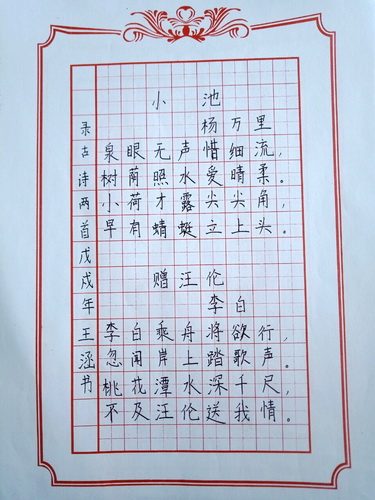 小池
杨万里
泉眼无声惜细流，
树荫照水爱晴柔。
小荷才露尖尖角，
早有蜻蜓立上头。
赠汪伦
李白
李白乘舟将欲行，
忽闻岸上踏歌声。
桃花潭水深千尺，
不及汪伦送我情。
录古诗两首戊戌年王涵书